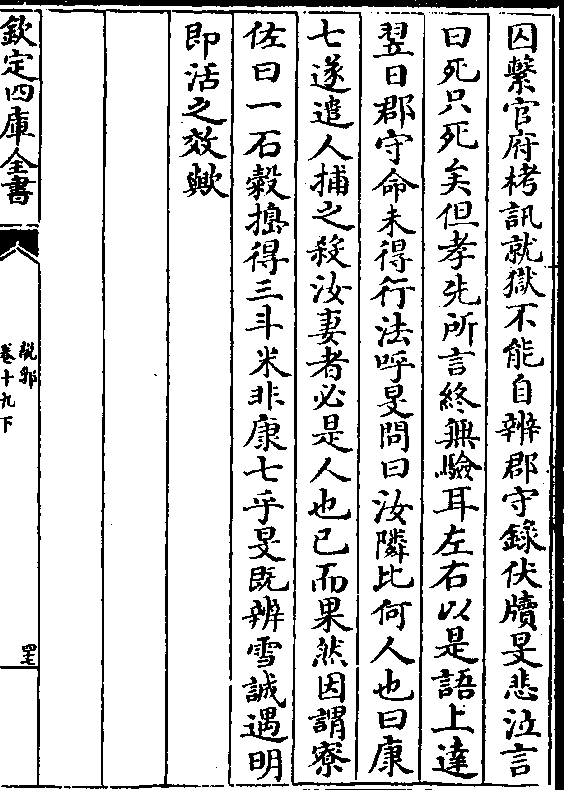 囚繫官府栲訊就獄不能自辨郡守錄伏牘旻悲泣言
曰死只死矣但孝先所言終無驗耳左右以是語上達
翌日郡守命未得行法呼旻問曰汝隣比何人也曰康
七遂遣人捕之殺汝妻者必是人也已而果然因謂寮
佐曰一石穀搗得三斗米非康七乎旻既辨雪誠遇明
即活之效歟
欽定四庫全書
說郛
卷十九下